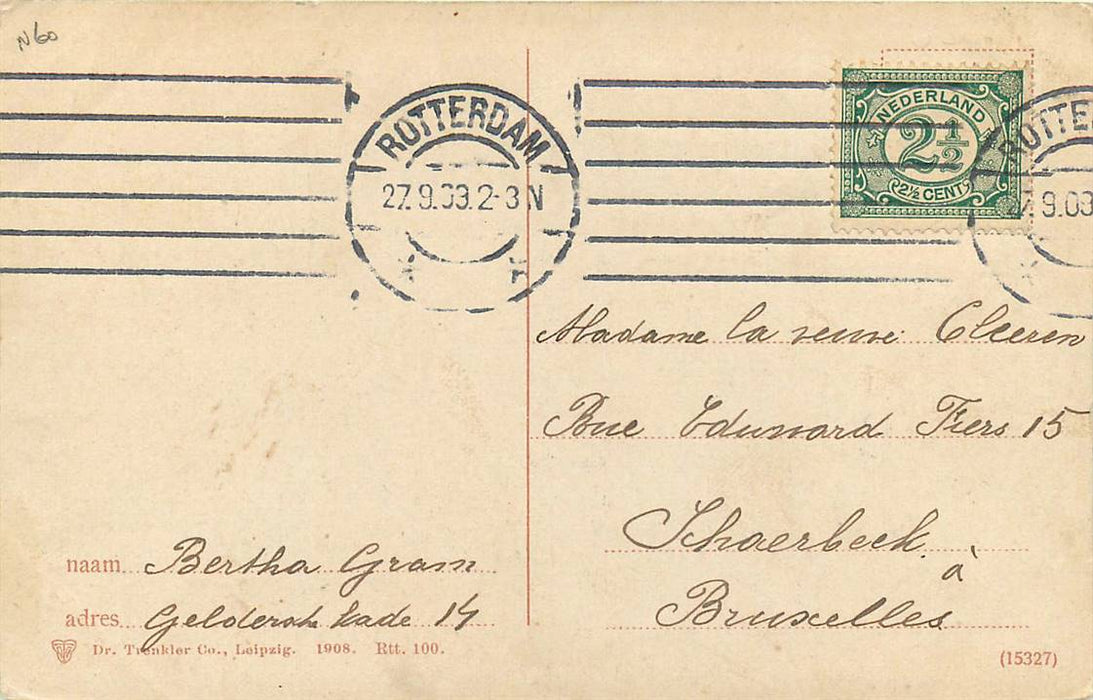 N60
ROTTERDAM
27.9.09.2-3N
NEDERLAND
2½
2½ CENT
ROTTE
9.09
Madame la veuve Cleeren
Rue Eduward Fiers 15
Schaerbeek
à
Bruxelles
naam Bertha Gram
adres Geldersch kade 14
Dr. Trenkler Co., Leipzig. 1908. Rtt. 100.
(15327)